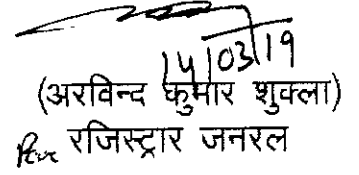 14/03/19
(अरविन्द कुमार शुक्ला)
रजिस्ट्रार जनरल